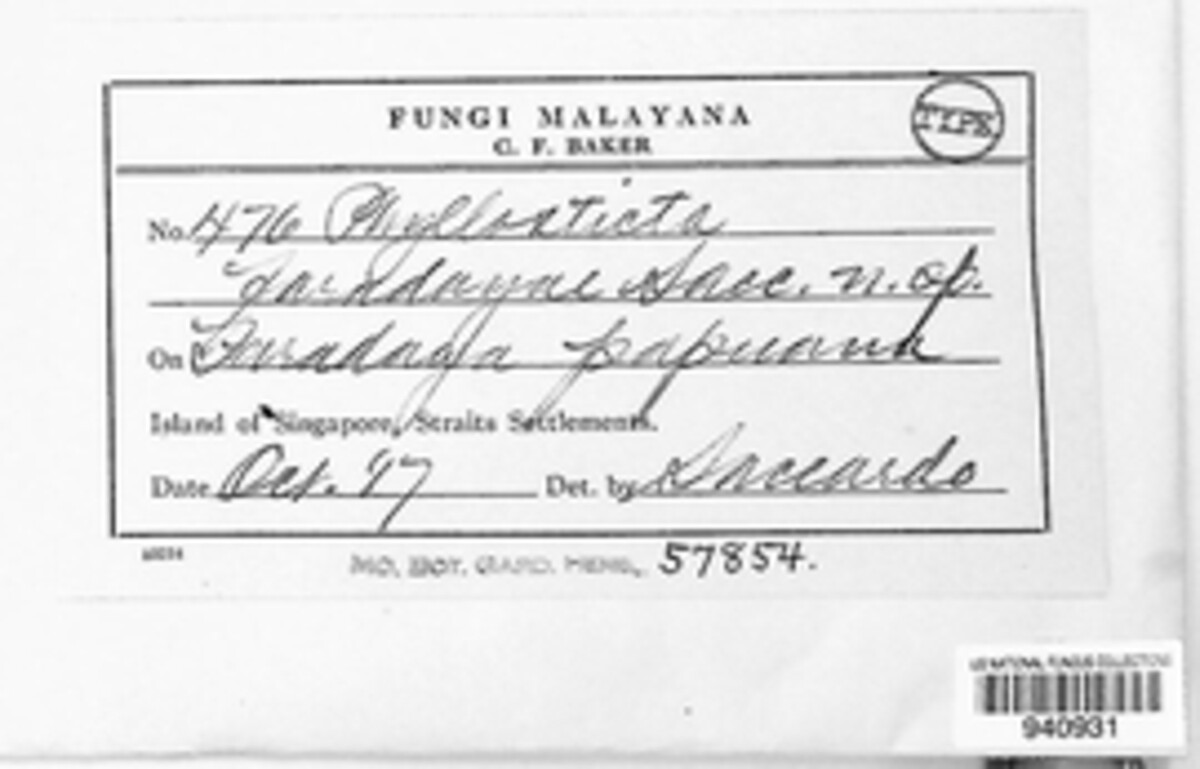 FUNGI MALAYANA
TYPE
C. F. BAKER
No. 476 Phyllosticta
Faradayae Sacc. n. sp.
On Faradaya papuana
Island of Singapore, Straits Settlements.
Date Oct. '17 Det. by Saccardo
MO. BOT. GARD. HERB. 57854.
US NATIONAL FUNGUS COLLECTIONS
940931